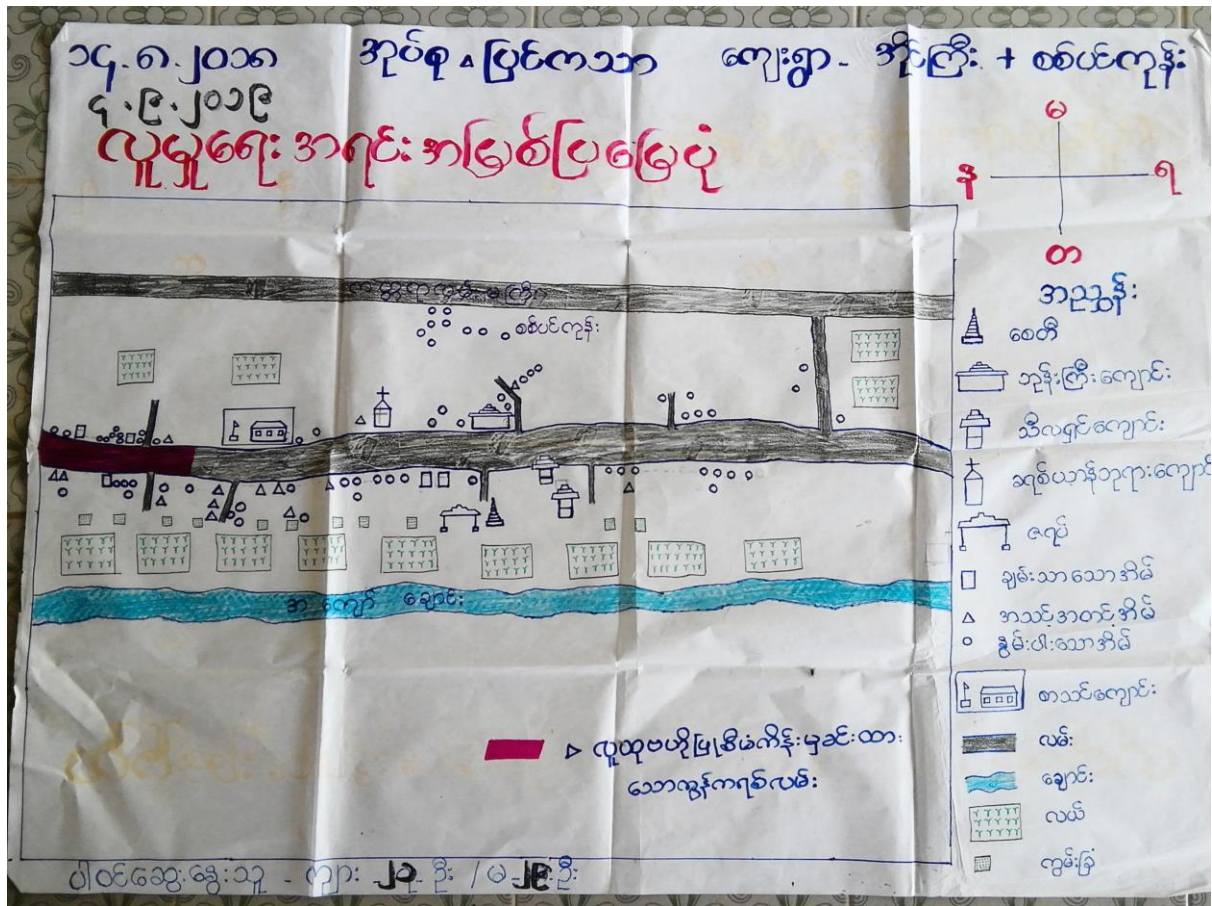 ၁၄.၈.၂၀၁၈ အုပ်စု - ပြင်ကသာ ကျေးရွာ - အိုင်ကြီး + စစ်ပင်ကုန်း
၄.၉.၂၀၁၉
လူမှုရေးအရင်းအမြစ်ပြမြေပုံ
မ
န ရ
တ
အညွှန်း
စေတီ
ဘုန်းကြီးကျောင်း
သီလရှင်ကျောင်း
ခရစ်ယာန်ဘုရားကျောင်း
ဇရပ်
ချမ်းသာသောအိမ်
အသင့်အတင့်အိမ်
နွမ်းပါးသောအိမ်
စာသင်ကျောင်း
လမ်း
ချောင်း
လယ်
ကွမ်းခြံ
ကတ္တရာကွန် မကြီး
စစ်ပင်ကုန်း
အကျော် ချောင်း
လူထုဗဟိုပြုစီမံကိန်းမှခင်းထား
သောကွန်ကရစ်လမ်း
ပါဝင်ဆွေးနွေးသူ - ကျား - ၂၃ ဦး / မ - ၂၉ ဦး